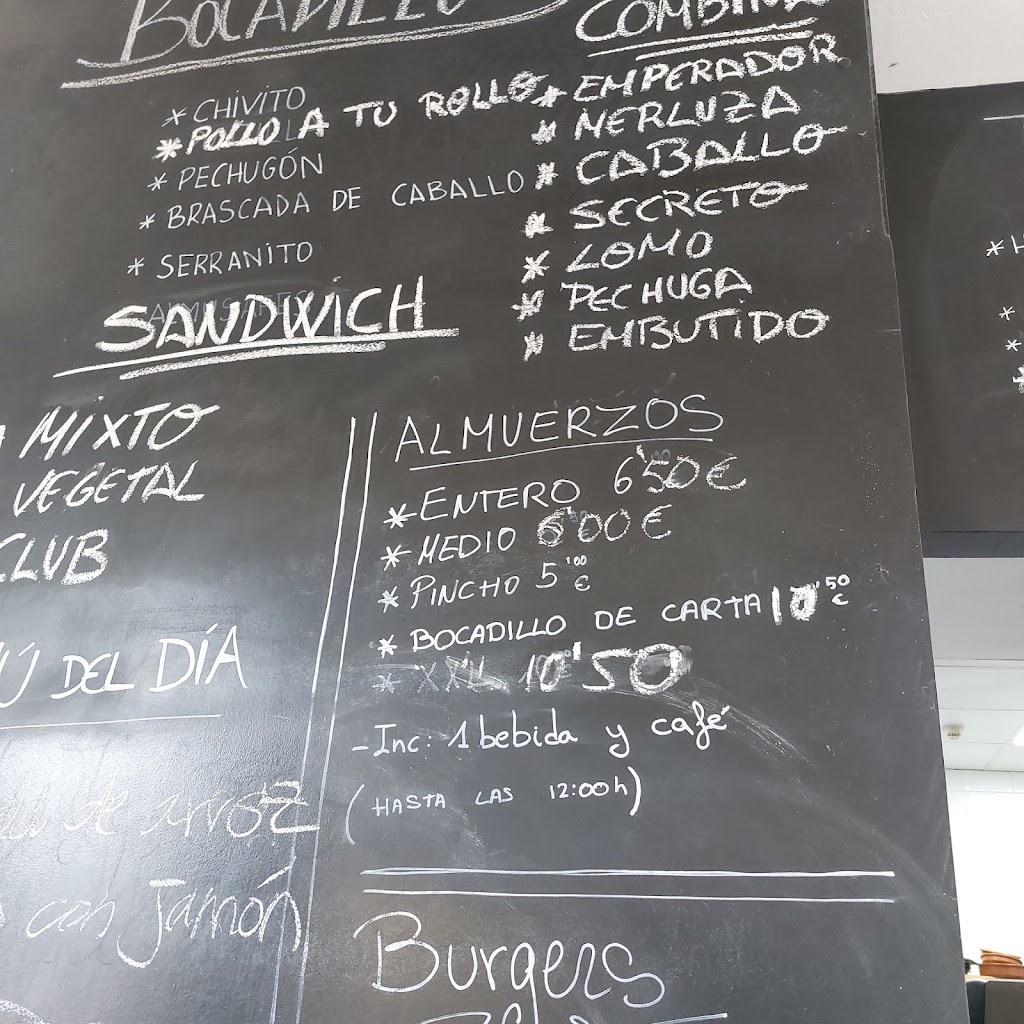 BOCADILLO
* CHIVITO
* POLLO A TU ROLLO
* PECHUGÓN
* BRASCADA DE CABALLO
* SERRANITO
COMBINA
* EMPERADOR
* MERLUZA
* CABALLO
* SECRETO
* LOMO
* PECHUGA
* EMBUTIDO
SANDWICH
MIXTO
VEGETAL
CLUB
DEL DÍA
de arroz
con Jamón
ALMUERZOS
* ENTERO 6'50€
* MEDIO 6'00€
* PINCHO 5'00€
* BOCADILLO DE CARTA 10'50€
* XXL 10'50
- Inc: 1 bebida y café
(HASTA LAS 12:00h)
Burgers